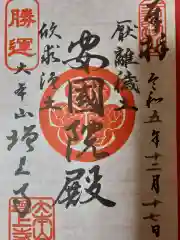 奉拝
令和五年十二月十七日
厭離穢土
安國院殿
欣求浄土
勝運
大本山増上寺